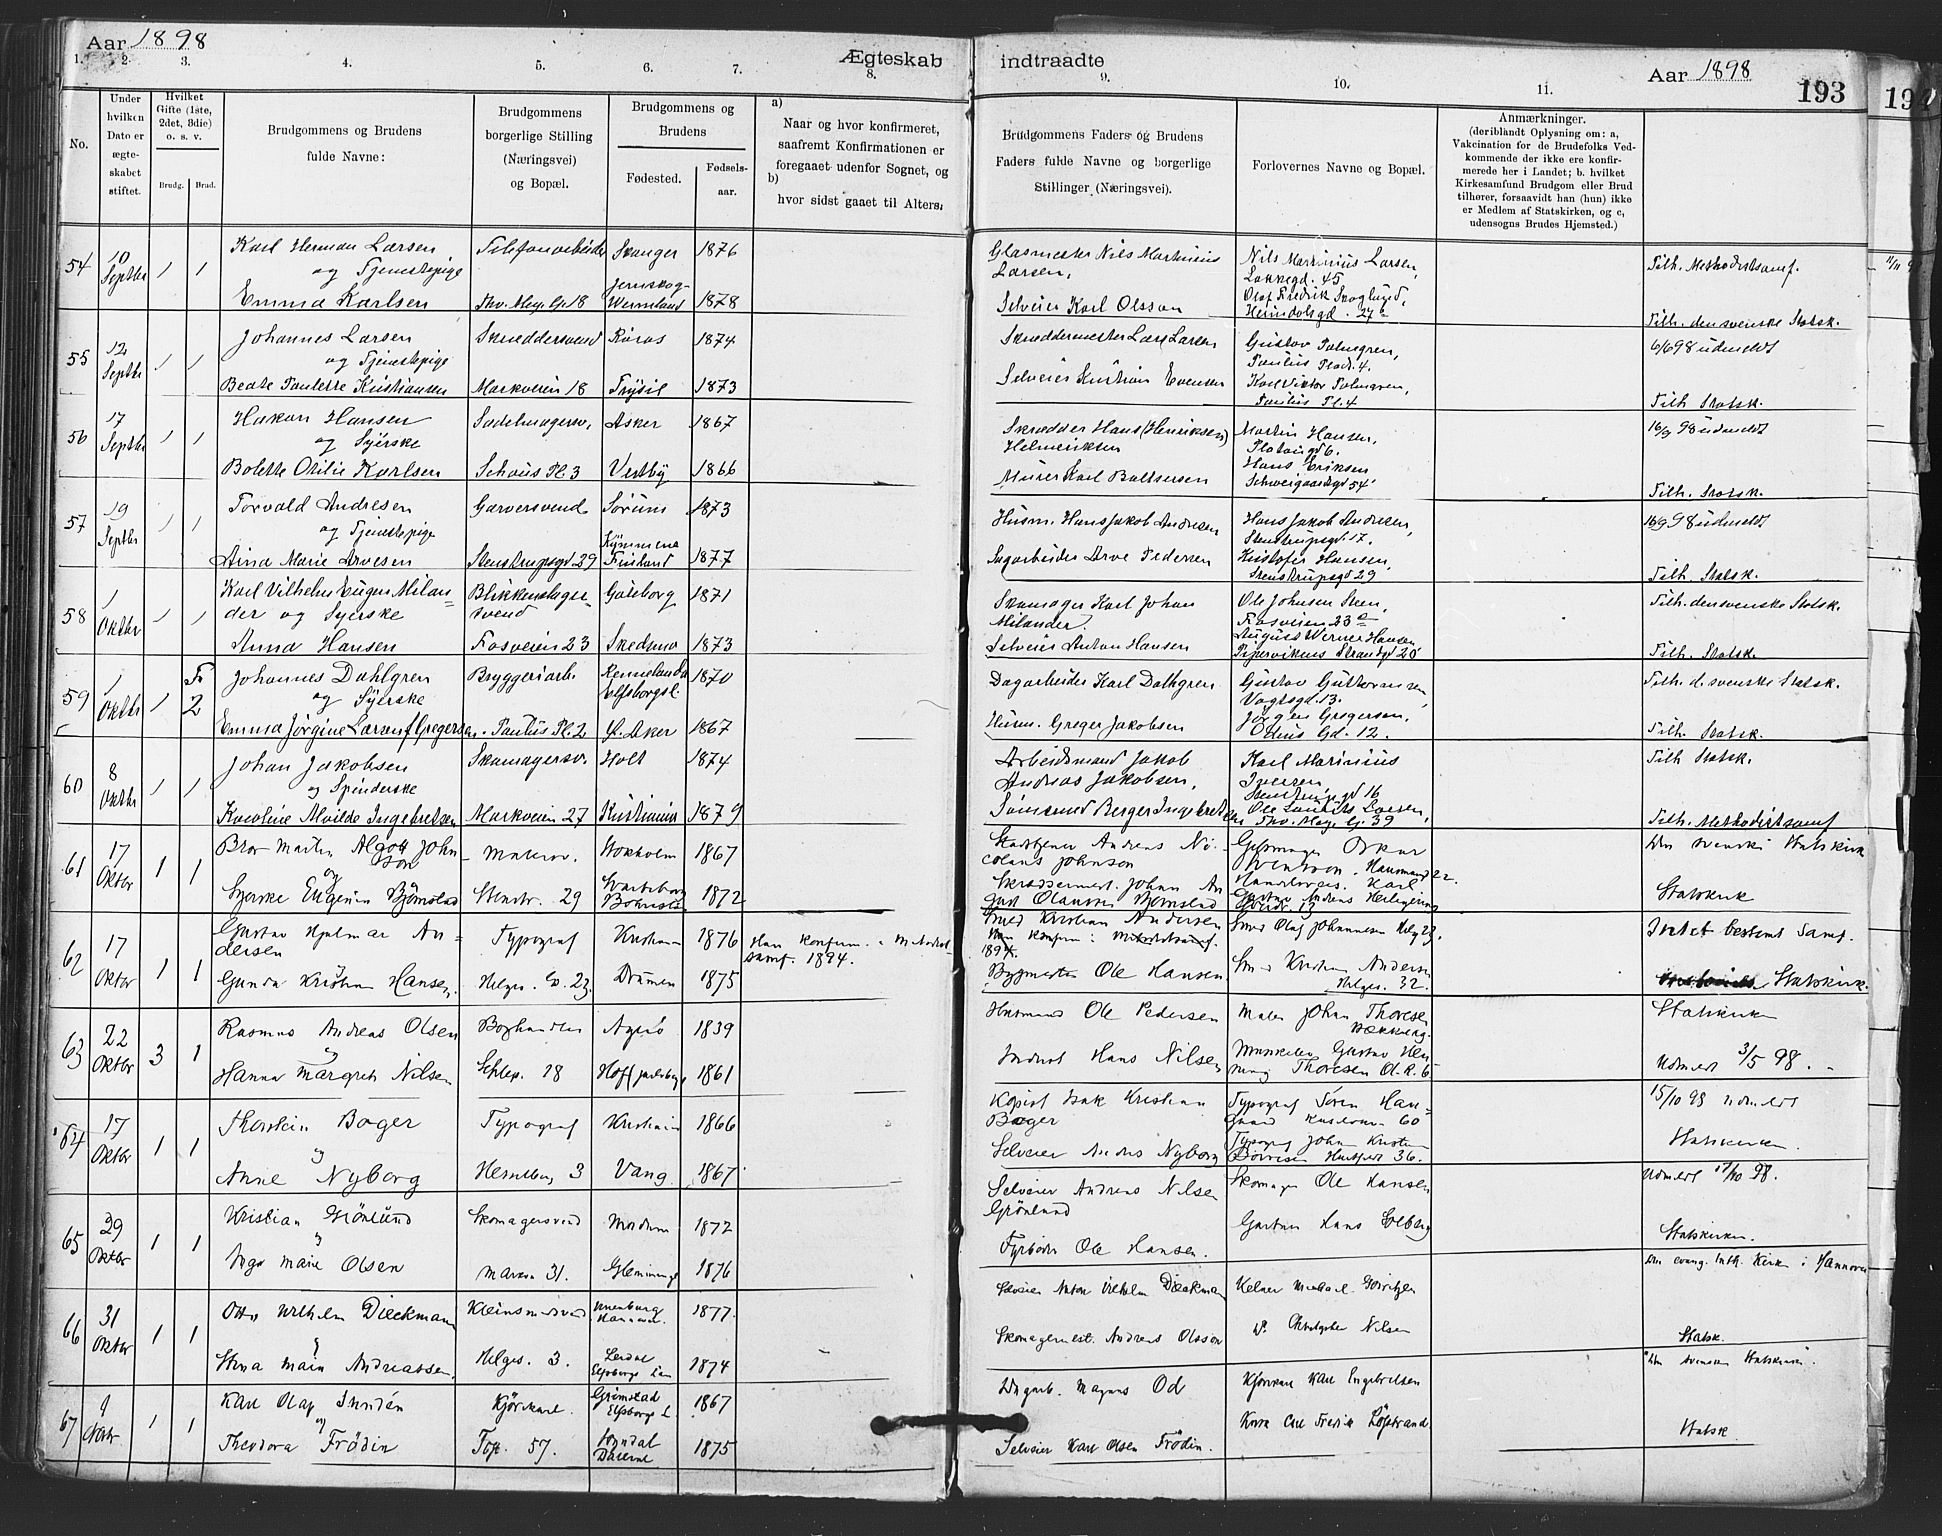 Aar 1898
Ægteskab
indtraadte
Aar 1898
193
194
1. 2. 3. 4. 5. 6. 7. 8. 9. 10. 11.
No.
Under hvilken Dato er ægteskabet stiftet.
Hvilket Gifte (1ste, 2det, 3die) o. s. v.
Brudg. Brud.
Brudgommens og Brudens fulde Navne:
Brudgommens borgerlige Stilling (Næringsvei) og Bopæl.
Brudgommens og Brudens
Fødested.
Fødselsaar.
a) Naar og hvor konfirmeret, saafremt Konfirmationen er foregaaet udenfor Sognet, og
b) hvor sidst gaaet til Alters.
Brudgommens Faders og Brudens Faders fulde Navne og borgerlige Stillinger (Næringsvei).
Forlovernes Navne og Bopæl.
Anmærkninger. (deriblandt Oplysning om: a, Vakcination for de Brudefolks Vedkommende der ikke ere konfirmerede her i Landet; b. hvilket Kirkesamfund Brudgom eller Brud tilhører, forsaavidt han (hun) ikke er Medlem af Statskirken, og c, udensogns Brudes Hjemsted.)
54 10 Septbr 1 1 Karl Herman Larsen Telefonarbeider Stanger 1876
og Tjenestepige
Emma Karlsen Thv. Mey. G. 18 Jernskog Wermland 1878
Glasmester Nils Martinius Larsen,
Selveier Karl Olsson
Nils Martinius Larsen, Lakkegd. 45
Olaf Fredrik Skoglund, Heimdalsgd. 27
Tilh. Methodistsamf.
Tilh. den svenske Statsk.
55 12 Septbr 1 1 Johannes Larsen Skræddersvend Røros 1874
og Tjenestepige
Beate Paulette Kristiansen Markveien 18 Trysil 1873
Skræddermester Lars Larsen
Selveier Kristian Evensen
Gustav Palmgren, Paulus Plads 4.
Karl Viktor Palmgren, Paulus Pl. 4
6/6 98 udmeldt
Tilh. Statsk.
56 17 Septbr 1 1 Hakon Hansen Sadelmagersv. Asker 1867
og Syerske
Bolette Otilie Karlsen Schous Pl. 3 Vestby 1866
Skrædder Hans (Henriksen) Helmeriksen
Murer Karl Baltsersen
Martin Hansen, Platousgd 6.
Hans Eriksen Schweigaardsgd 54
16/9 98 udmeldt
Tilh. Statsk.
57 19 Septbr 1 1 Torvald Andresen Garversvend Sørum 1873
og Tjenestepige
Aina Marie Arvesen Stenstrupsgd. 29 Kymmene Finland 1877
Husm. Hans Jakob Andresen
Sagarbeider Arve Pedersen
Hans Jakob Andresen, Stenstrupsgd. 17.
Kristofer Hansen, Stenstrupsgd 29
16/9 98 udmeldt
Tilh. Statsk.
58 1 Oktbr 1 1 Karl Vilhelm Eugen Milander og Syerske Blikkenslagersvend Gøteborg 1871
Anna Hansen Fosveien 23 Skedsmo 1873
Skomager Karl Johan Milander,
Selveier Anton Hansen
Ole Johnsen Steen, Fosveien 23
August Werner Hansen Pipervikens Strandgd 20
Tilh. den svenske Statsk.
Tilh. Statsk.
59 1 Oktbr 1 Fr 2 Johannes Dahlgren Bryggeriarb. Rennelanda Elfsborgsl. 1870
og Syerske
Emma Jørgine Larsen f. Gregersen Paulus Pl. 2 V. Aker 1867
Dagarbeider Karl Dahlgren
Husm. Greger Jakobsen
Gustav Guttormsen, Vogtsgd. 13.
Jørgen Gregersen, Odins Gd. 12.
Tilh. d. svenske Statsk.
Tilh. Statsk.
60 8 Oktbr 1 1 Johan Jakobsen Skomagersv. Holt 1874
og Spinderske
Karoline Alvilde Ingebretsen Markveien 27 Kristiania 1879
Arbeidsmand Jakob Andreas Jakobsen,
Tømmermand Berger Ingebretsen
Karl Marinius Iversen Stenstrupsgd 16
Ole Laurits Larsen, Thv. Mey. G. 39
Tilh Statsk.
Tilh. Methodistsamf
61 17 Oktbr 1 1 Bror Martin Algott Johnson Malersv. Stokholm 1867
og
Syerske Eugenia Bjørnstad Stenstr. 29 Bohuslän 1872
Stadstjener Andreas Nicolaus Johnson
Skræddermest. Johan August Olausson Bjørnstad
Oskar Wentzon, Hausmand 22.
Karl Gustav Andreas
Den svenske Statskirke
Statskirk
62 17 Oktbr 1 1 Gustav Hjalmar Andersen Typograf Kristiania 1876
Gunda Kristine Hansen. Helges. G. 23. Drammen 1875
Han konfirm. i Metodistsamf. 1894.
Smed Kristian Andersen
Han konfirm i Metodistsamf. 1894.
Bygmester Ole Hansen.
Smed Olaf Johannesen Helg 23.
Smed Kristian Andersen Helges. 32.
Intet bestemt Samf.
Statskirk.
63 22 Oktbr 3 1 Rasmus Andreas Olsen Boghandler Agerø 1839
og
Hanna Margrete Nilsen Schlep. 18 Hof (Jarlsberg) 1861
Husmand Ole Pedersen
Inderst Hans Nilsen
Maler Johan Thoresen Bækkevg.
Musikeler Gustav Henning Thoresen O. R. 6
Statskirken
Udmeldt 3/5 98.
64 17 Oktbr 1 1 Thorstein Bager Typograf Kristiania 1866
og
Anne Nyborg Heselberg 3 Vang. 1867
Kopist Isak Kristian Bager
Selveier Anders Nyborg
Typograf Søren Hansgaard 60
Typograf Johan Kristian Børresen 36.
15/10 98 udmeldt
Statskirken.
65 29 Oktbr 1 1 Kristian Grönlund Skomagersvend Modum 1872
og
Inga Marie Olsen Markv 31. Glemminge 1876
Selveier Andreas Nilsen Grönlund
Fyrbøder Ole Hansen.
Skomager Ole Hansen
Gartner Hans Solberg
Udmeldt 17/10 98.
Statskirken.
66 31 Oktbr 1 1 Otto Wilhelm Dieckmann Kleinsmedsvend Hannover. 1877.
og
Stina Maria Andreassen. Helges. 3. Lerdal Elfsborgs Län 1874
Skomagermest. Andreas Olsson
Anton Wilhelm Dieckman
Kelner Michael Görritzen
Do. Christopher Nilsen
Den evang. luth. Kirke i Hannover
Statsk.
67 1 Novbr 1 1 Karl Olaf Sundén Kjørekarl. Grimstad Elfsborgs L. 1867
og
Theodora Frödin Tof. 57. 1875
Dagarb. Magnus Od
Selveier Karl Olsen Frödin.
Kjørekarl Karl Engebretsen
Carl Fredrik Löfstrand
Den svenske Statskirke.
Statsk.